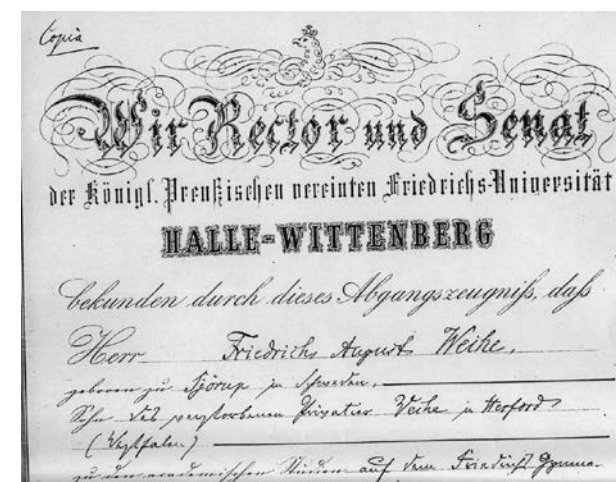 Copia
Wir Rector und Senat
der Königl. Preußischen vereinten Friedrichs-Universität
HALLE-WITTENBERG
bekunden durch dieses Abgangszeugniß, daß
Herr Friedrich August Weihe,
geboren zu Sjörup in Schweden,
Sohn des verstorbenen Privatier Weihe in Herford
(Westfalen)
zu den academischen Studien auf dem Friedrichs Gymna-